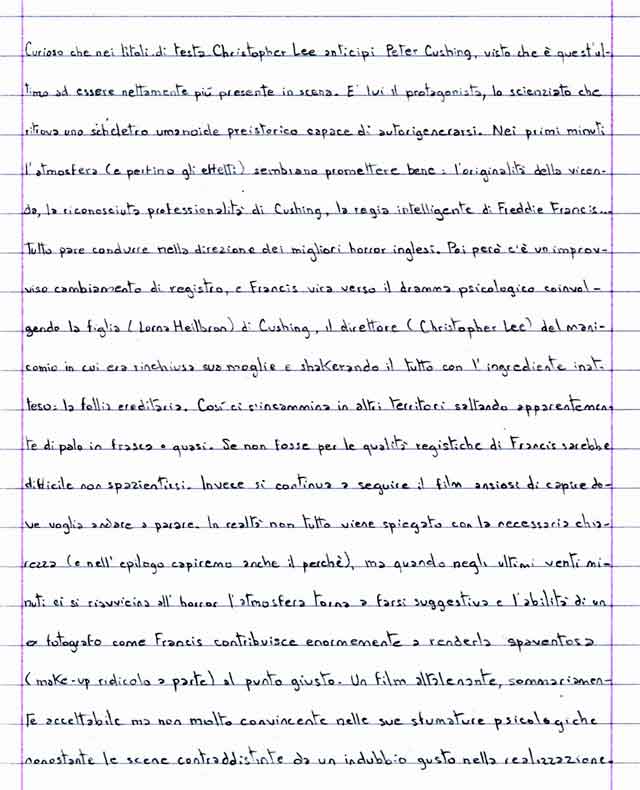 Curioso che nei titoli di testa Christopher Lee anticipi Peter Cushing, visto che è quest'ul-
timo ad essere nettamente più presente in scena. E' lui il protagonista, lo scienziato che
ritrova uno scheletro umanoide preistorico capace di autorigenerarsi. Nei primi minuti
l'atmosfera (e perfino gli effetti) sembrano promettere bene: l'originalità della vicen-
da, la riconosciuta professionalità di Cushing, la regia intelligente di Freddie Francis...
Tutto pare condurre nella direzione dei migliori horror inglesi. Poi però c'è un improv-
viso cambiamento di registro, e Francis vira verso il dramma psicologico coinvol-
gendo la figlia (Lorna Heilbron) di Cushing, il direttore (Christopher Lee) del mani-
comio in cui era rinchiusa sua moglie e shakerando il tutto con l'ingrediente inat-
teso: la follia ereditaria. Così ci s'incammina in altri territori saltando apparentemen-
te di palo in frasca o quasi. Se non fosse per le qualità registiche di Francis sarebbe
difficile non spazientirsi. Invece si continua a seguire il film ansiosi di capire do-
ve voglia andare a parare. In realtà non tutto viene spiegato con la necessaria chia-
rezza (e nell'epilogo capiremo anche il perchè), ma quando negli ultimi venti mi-
nuti ci si riavvicina all'horror l'atmosfera torna a farsi suggestiva e l'abilità di un
fotografo come Francis contribuisce enormemente a renderla spaventosa
(make-up ridicolo a parte) al punto giusto. Un film altalenante, sommariamen-
te accettabile ma non molto convincente nelle sue sfumature psicologiche
nonostante le scene contraddistinte da un indubbio gusto nella realizzazione.